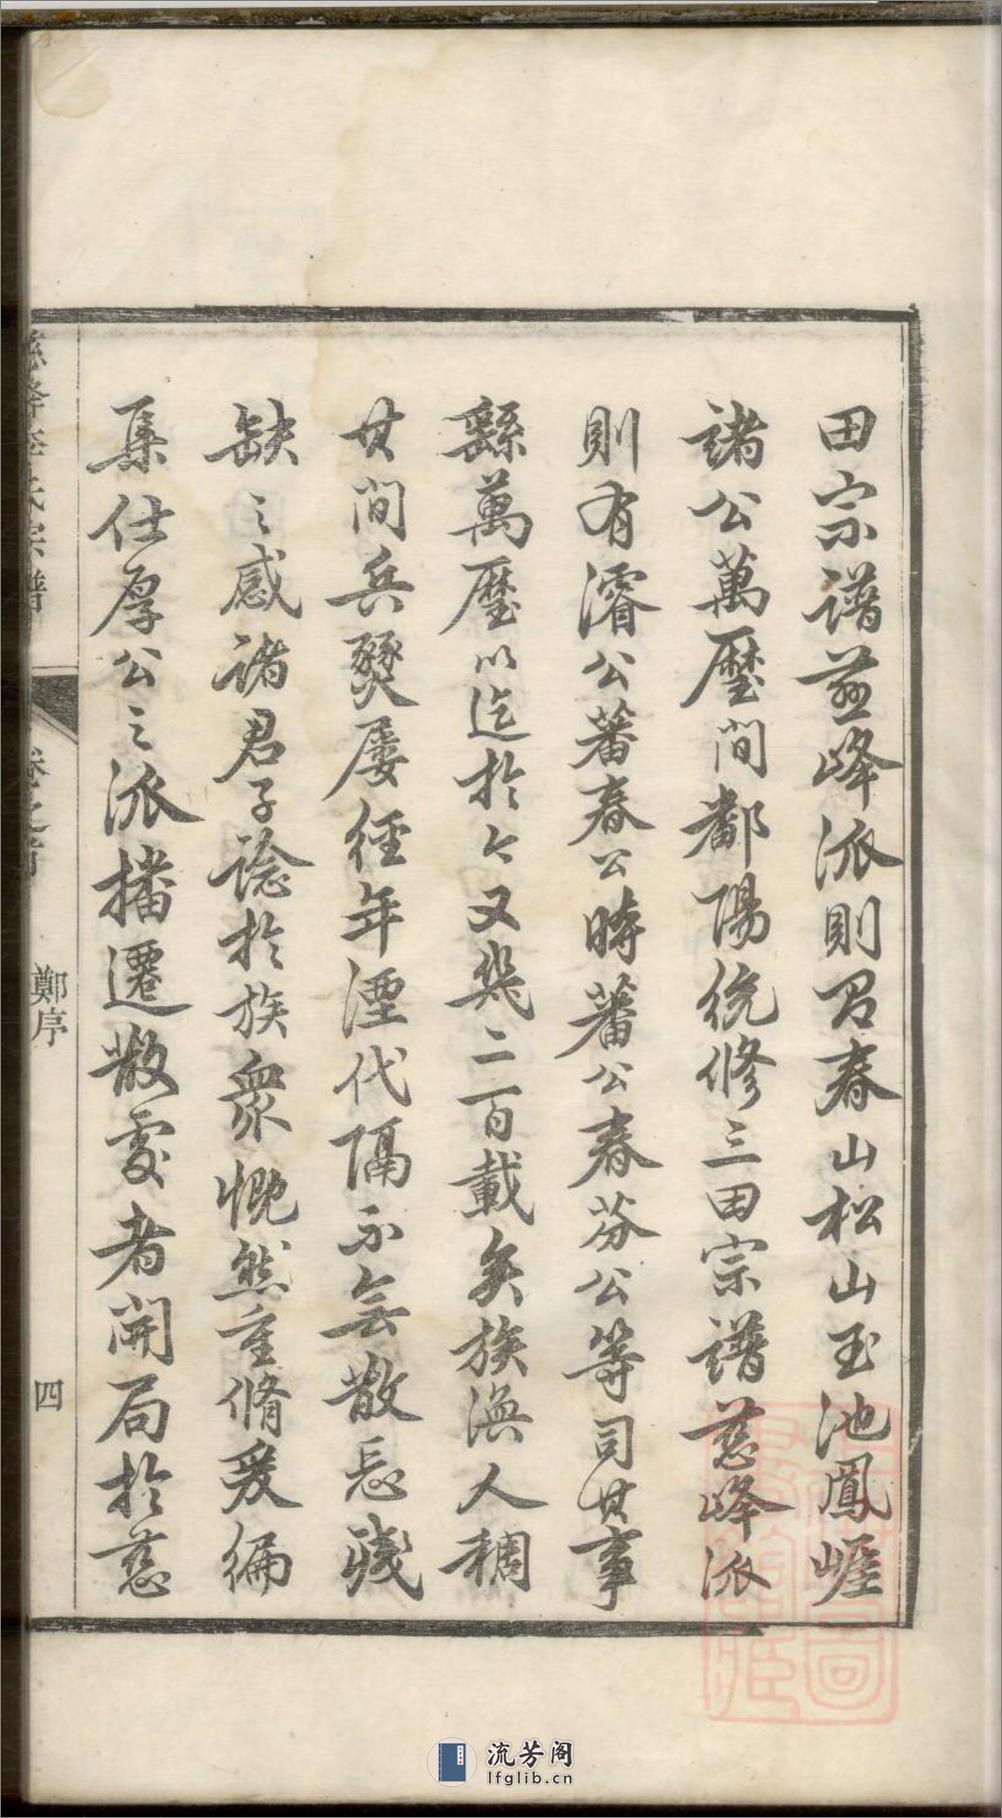 田宗譜慈峰派則召春山松山玉池鳳崕
諸公萬歷間鄱陽統修三田宗譜慈峰派
則有濬公蕃春公時蕃公春芬公等司其事
繇萬歷以迄於今又幾二百載矣族渙人稠
其間兵燹屡經年湮代隔不無散忘殘
缺之感諸君子諗於族衆慨然重脩爰編
集仕厚公之派播遷散處者開局於慈
慈峰李氏宗譜
卷之首
鄭序
四
流芳阁
lfglib.cn